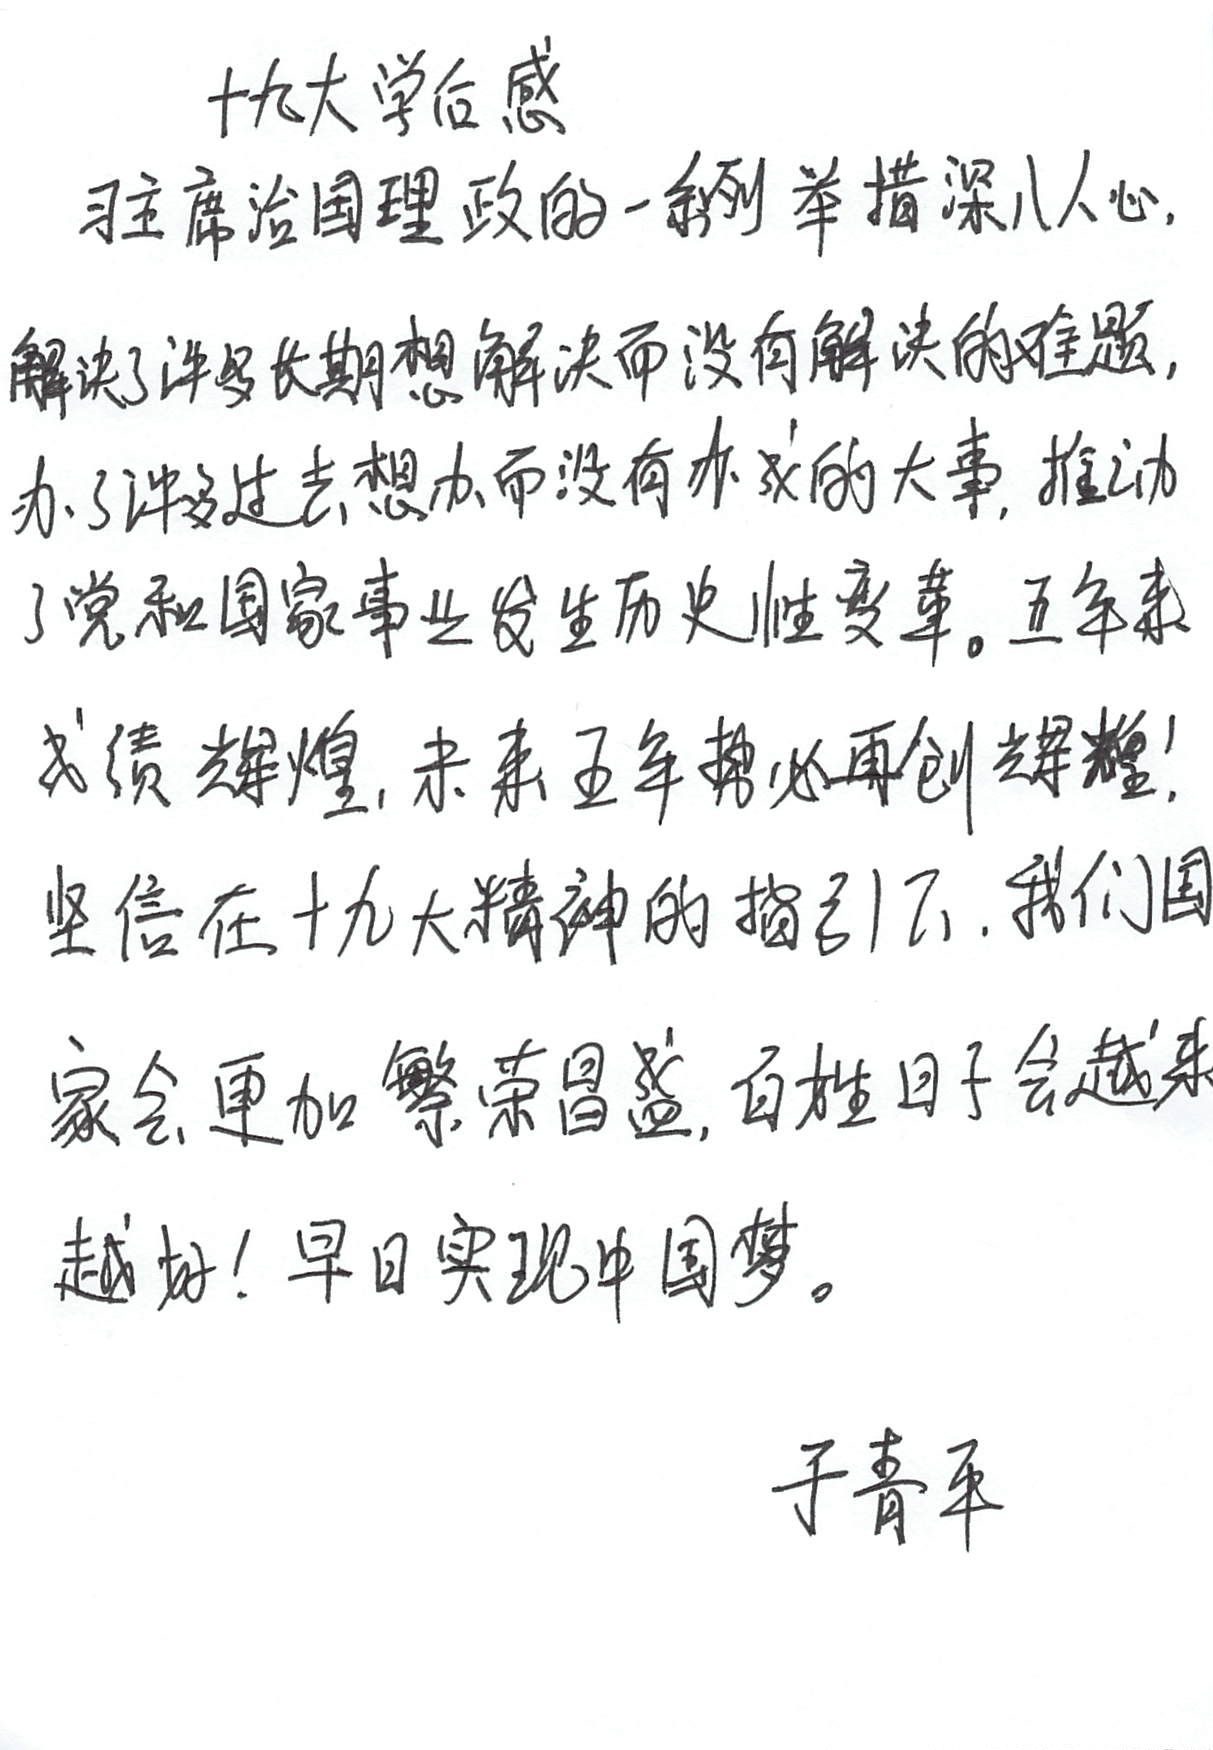 十九大学后感
习主席治国理政的一系列举措深入人心,
解决了许多长期想解决而没有解决的难题,
办了许多过去想办而没有办成的大事,推动
了党和国家事业发生历史性变革。五年来
成绩辉煌,未来五年势必再创辉煌!
坚信在十九大精神的指引下,我们国
家会更加繁荣昌盛,百姓日子会越来
越好!早日实现中国梦。
于青平